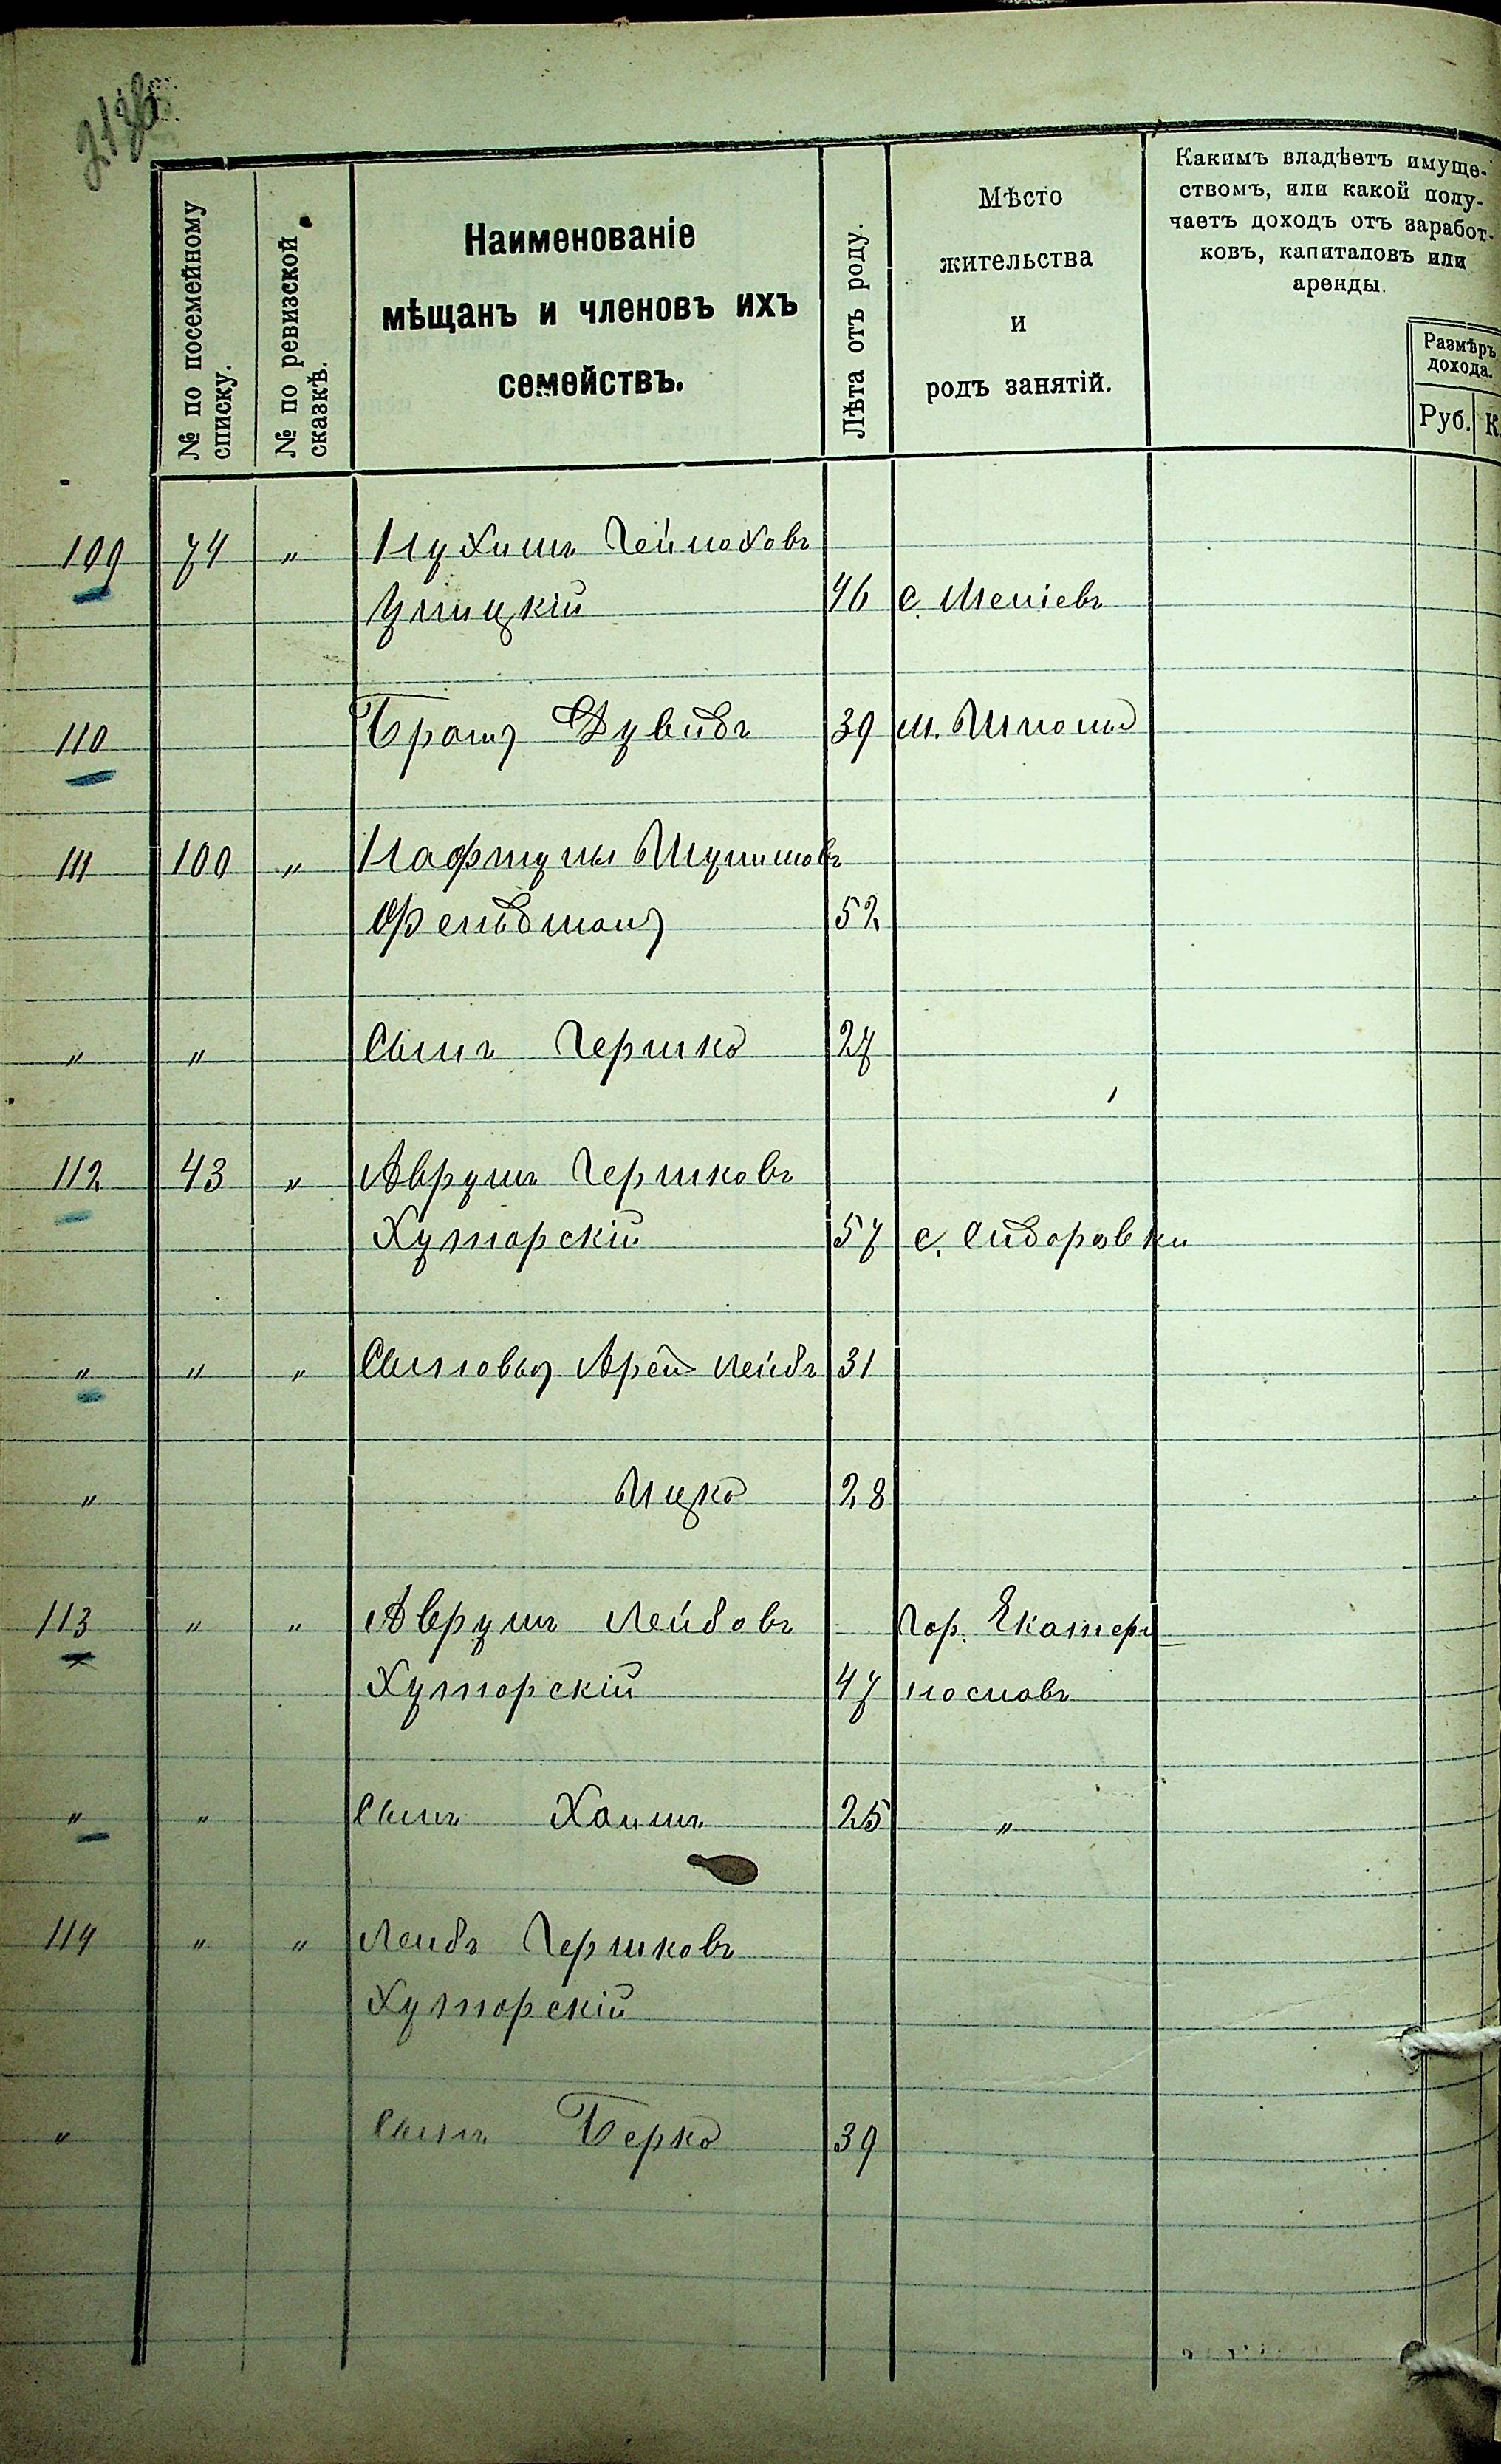 213
№ по посемейному списку.
№ по ревизской сказкѣ.
Наименованіе
мѣщанъ и членовъ ихъ
семействъ.
Лѣта отъ роду.
Мѣсто
жительства
и
родъ занятій.
Какимъ владѣетъ имуще-
ствомъ, или какой полу-
чаетъ доходъ отъ заработ-
ковъ, капиталовъ или
аренды.
Размѣръ
дохода.
Руб. К.
109 74 " Нухимъ Гейноховъ
Улицкій 46 с.
110 Братъ Дувидъ 39 м. Шпола
111 100 " Нафтулы Шулимовъ
Фельдманъ 52
" " Сынъ Гершко 27
112 43 " Аврумъ Гершковъ
Хуторскій 57 с. Сидоровки
" " " Сыновья Арей Лейбъ 31
" Ицко 28
113 " " Аврумъ Лейбовъ Гор. Екатери-
Хуторскій 47 нославъ
" " Сынъ Хаимъ 25 "
114 " " Лейбъ Гершковъ
Хуторскій
" Сынъ Берко 39